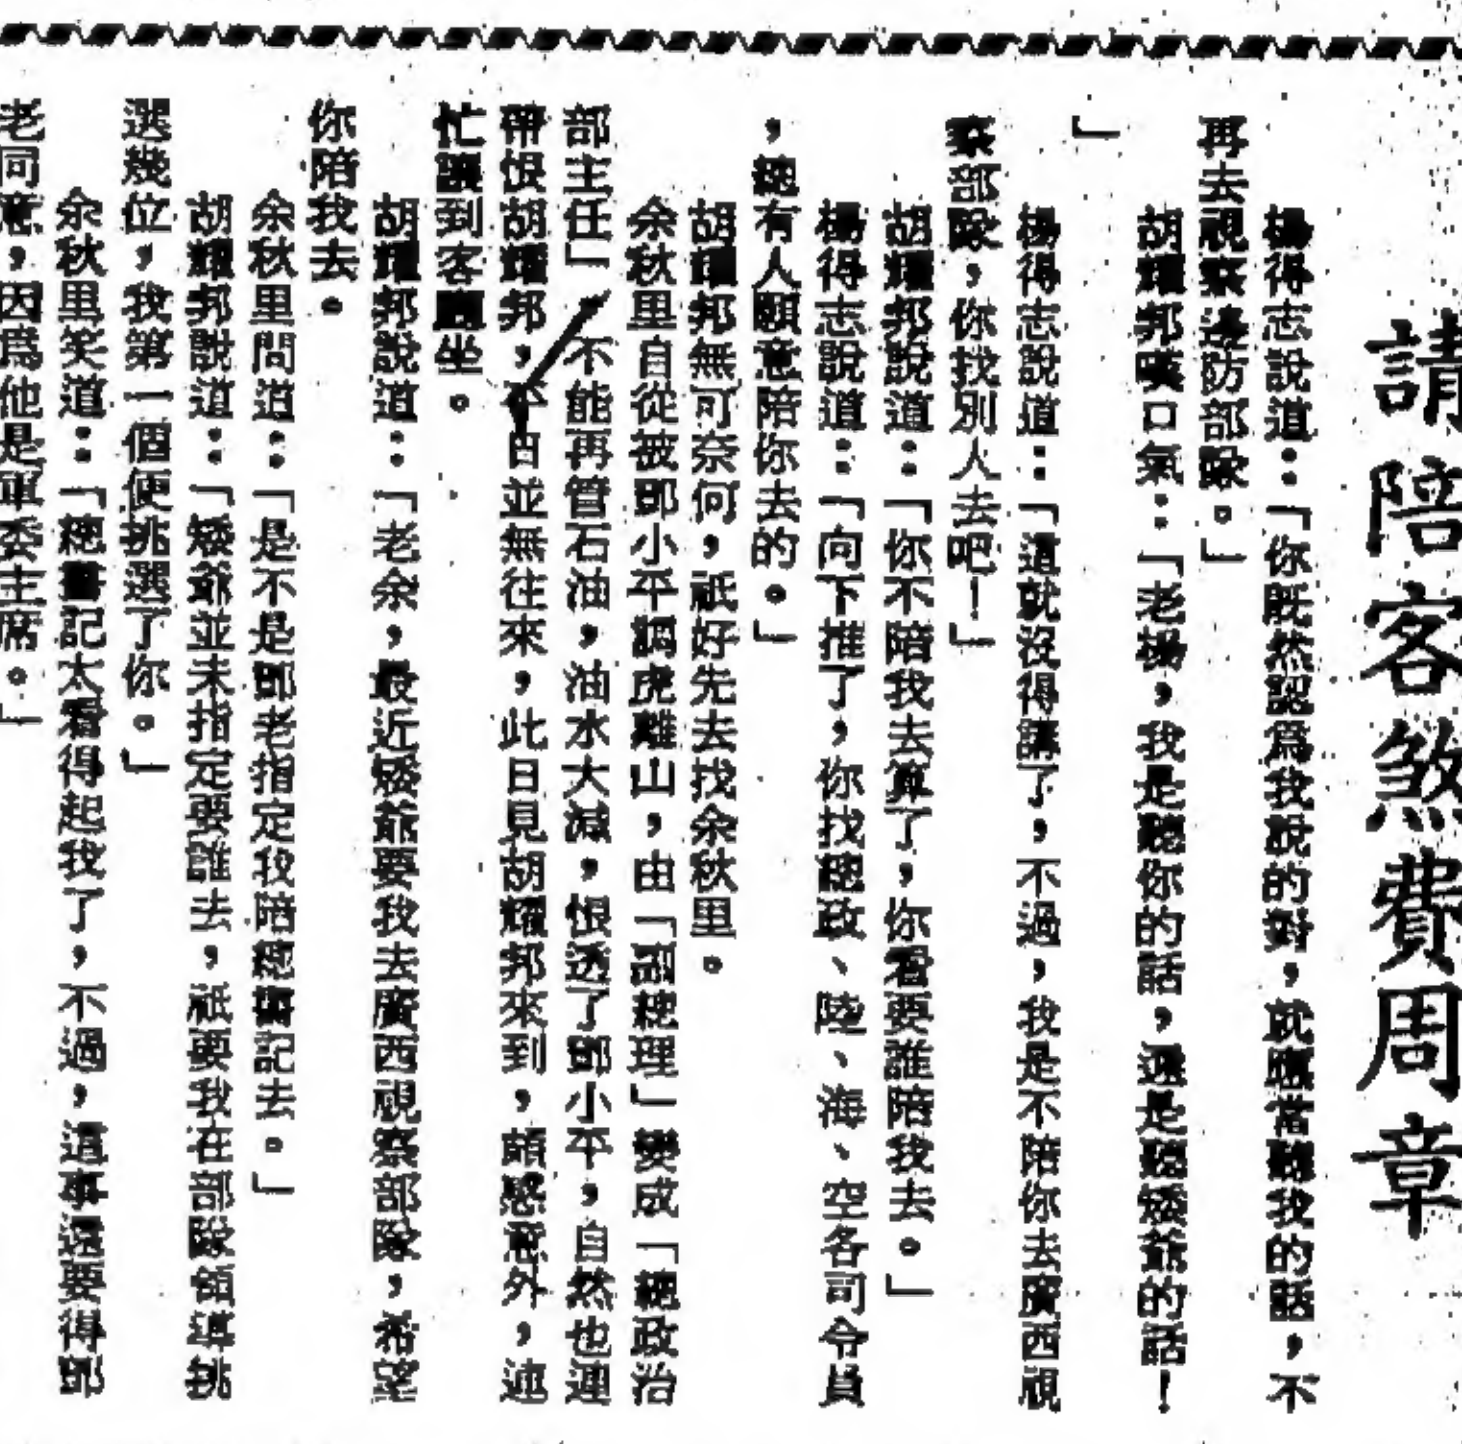 請陪客煞費周章
楊得志說道：「你既然認爲我說的對，就應當聽我的話，不
再去視察邊防部隊。」
胡耀邦嘆口氣：「老楊，我是聽你的話，還是聽矮爺的話！
」
楊得志說道：「這就沒得講了，不過，我是不陪你去廣西視
察部隊，你找別人去吧！」
胡耀邦說道：「你不陪我去算了，你看要誰陪我去。」
楊得志說道：「向下推了，你找總政、陸、海、空各司令員
，總有人願意陪你去的。」
胡耀邦無可奈何，祇好先去找余秋里。
余秋里自從被鄧小平調虎離山，由「副總理」變成「總政治
部主任」不能再管石油，油水大減，恨透了鄧小平，自然也連
帶恨胡耀邦，平日並無往來，此日見胡耀邦來到，頗感意外，連
忙讓到客廳坐。
胡耀邦說道：「老余，最近矮爺要我去廣西視察部隊，希望
你陪我去。
余秋里問道：「是不是鄧老指定我陪總書記去。」
胡耀邦說道：「矮爺並未指定要誰去，祇要我在部隊領導挑
選幾位，我第一個便挑選了你。」
余秋里笑道：「總書記太看得起我了，不過，這事還要得鄧
老同意，因爲他是軍委主席。」